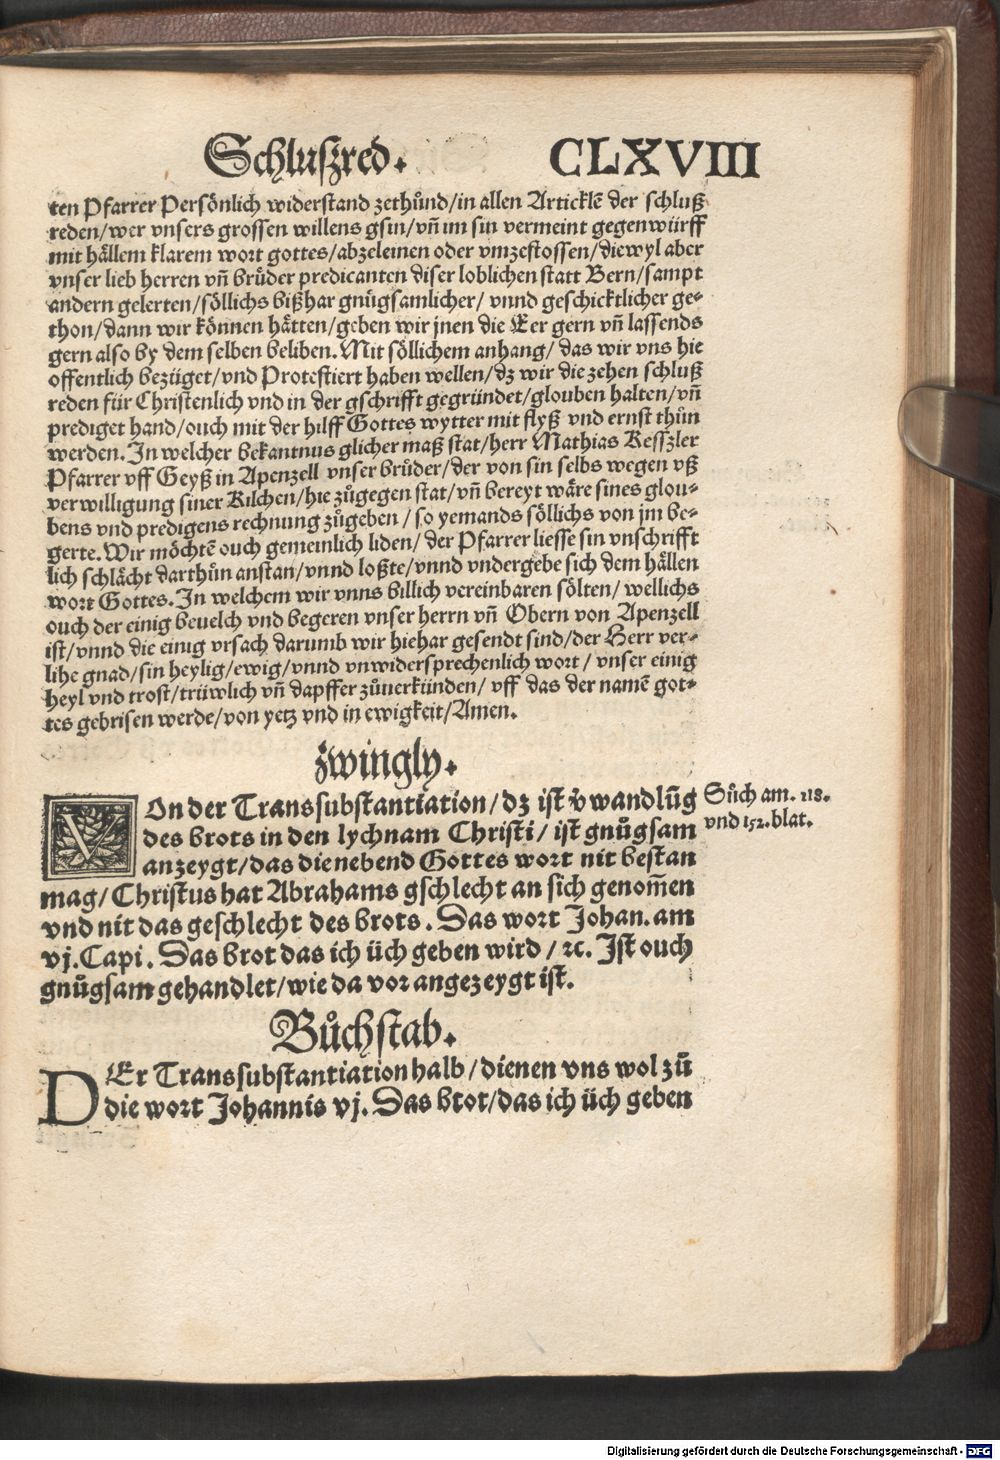 Schluſzred. CLXVIII
ten Pfarrer Perſönlich widerſtand zethůnd/in allen Articklē der ſchluß
reden/wer vnſers groſſen willens gſin/vñ im ſin vermeint gegenwürff
mit hällem klarem wort gottes/abzeleinen oder vmzeſtoſſen/diewyl aber
vnſer lieb herren vñ brůder predicanten diſer loblichen ſtatt Bern/ſampt
andern gelerten/ſöllichs bißhar gnůgſamlicher/ vnnd geſchicktlicher ge⸗
thon/dann wir können hätten/geben wir jnen die Eer gern vñ laſſends
gern alſo by dem ſelben beliben. Mit ſöllichem anhang/ das wir vns hie
offentlich bezüget/vnd Proteſtiert haben wellen/dz wir die zehen ſchluß
reden für Chriſtenlich vnd in der gſchrifft gegründet/glouben halten/vñ
prediget hand/ouch mit der hilff Gottes wytter mit flyß vnd ernſt thůn
werden. In welcher bekantnus glicher maß ſtat/herr Mathias Keſſzler
Pfarrer vff Geyß in Apenzell vnſer brůder/der von ſin ſelbs wegen vß
verwilligung ſiner Kilchen/hie zůgegen ſtat/vñ bereyt wäre ſines glou⸗
bens vnd predigens rechnung zůgeben / ſo yemands ſöllichs von jm be⸗
gerte. Wir möchtē ouch gemeinlich liden/ der Pfarrer lieſſe ſin vnſchrifft
lich ſchlächt darthůn anſtan/vnnd loßte/vnnd vndergebe ſich dem hällen
wort Gottes. In welchem wir vnns billich vereinbaren ſölten/ wellichs
ouch der einig beuelch vnd begeren vnſer herrn vñ Obern von Apenzell
iſt/vnnd die einig vrſach darumb wir hiehar geſendt ſind/der Herr ver⸗
lihe gnad/ſin heylig/ewig/vnnd vnwiderſprechenlich wort / vnſer einig
heyl vnd troſt/trüwlich vñ dapffer zůuerkünden/ vff das der namē got⸗
tes gebriſen werde/von yetz vnd in ewigkeit/Amen.
zwingly.
VOn der Transſubſtantiation/dz iſt v̄wandlūg
des brots in den lychnam Chriſti/ iſt gnůgſam
anzeygt/das die nebend Gottes wort nit beſtan
mag/Chriſtus hat Abrahams gſchlecht an ſich genom̄en
vnd nit das geſchlecht des brots. Das wort Johan. am
vj. Capi. Das brot das ich üch geben wird / ꝛc. Iſt ouch
gnůgſam gehandlet/wie da vor angezeygt iſt.
Sůch am. 118.
vnd 152. blat.
Bůchſtab.
DEr Transſubſtantiation halb/dienen vns wol zů
die wort Johannis vj. Das brot/das ich üch geben
Digitalisierung gefördert durch die Deutsche Forschungsgemeinschaft - DFG